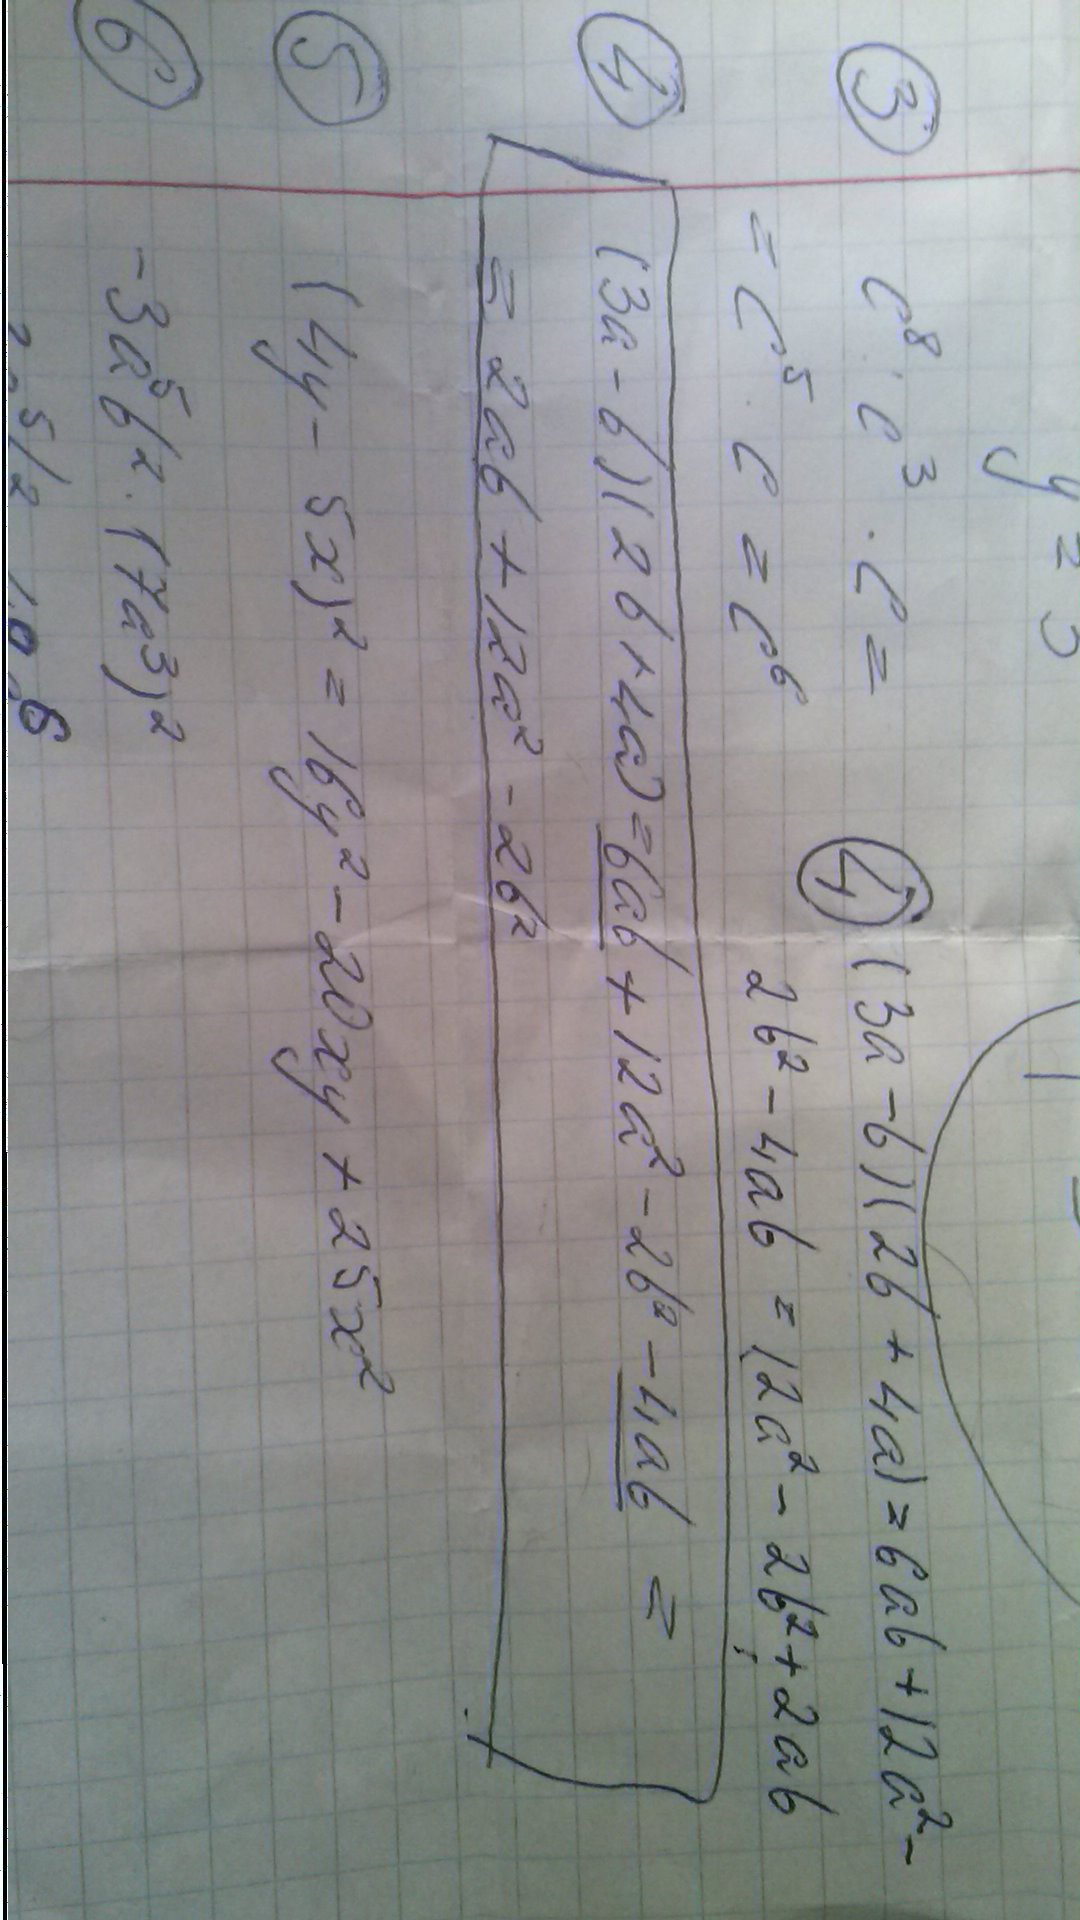 y = 3
③ c⁸ : c³ · c =
= c⁵ · c = c⁶
④ (3a - b)(2b + 4a) = 6ab + 12a² -
2b² - 4ab = 12a² - 2b² + 2ab
④ (3a - b)(2b + 4a) = 6ab + 12a² - 2b² - 4ab =
= 2ab + 12a² - 2b²
⑤ (4y - 5x)² = 16y² - 20xy + 25x²
⑥ -3a⁵b² · (7a³)²